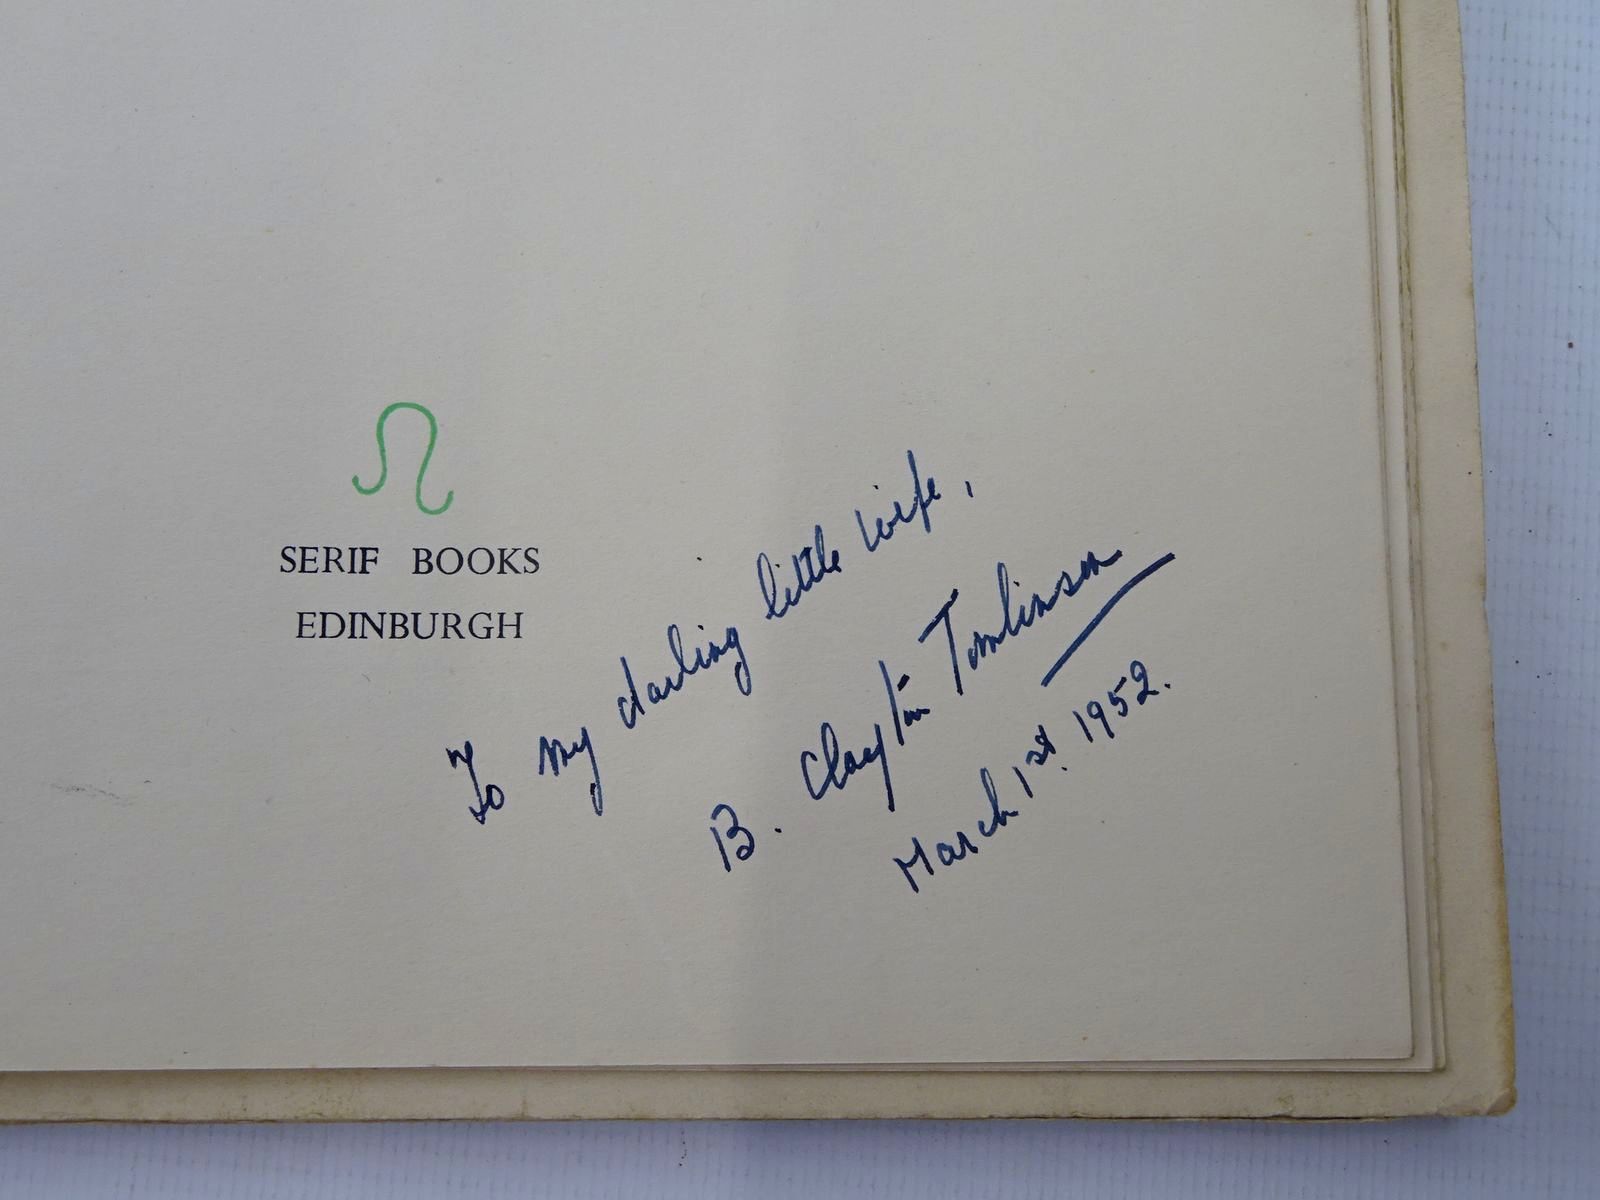 SERIF BOOKS
EDINBURGH
To my darling little wife,
B. Clayton Tomlinson
March 1st. 1952.